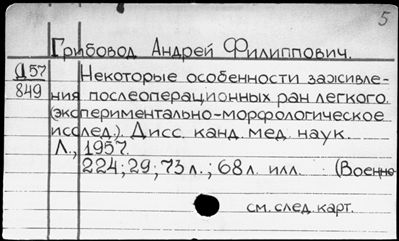 5
Грибовод Андрей Филиппович.
Д57 Некоторые особенности заживле-
849 ния послеоперационных ран легкого.
(экспериментально-морфологическое
исслед.). Дисс. канд. мед. наук.
Л., 1957.
224; 29; 73 л.; 68 л. илл. (Военно
см. след. карт.